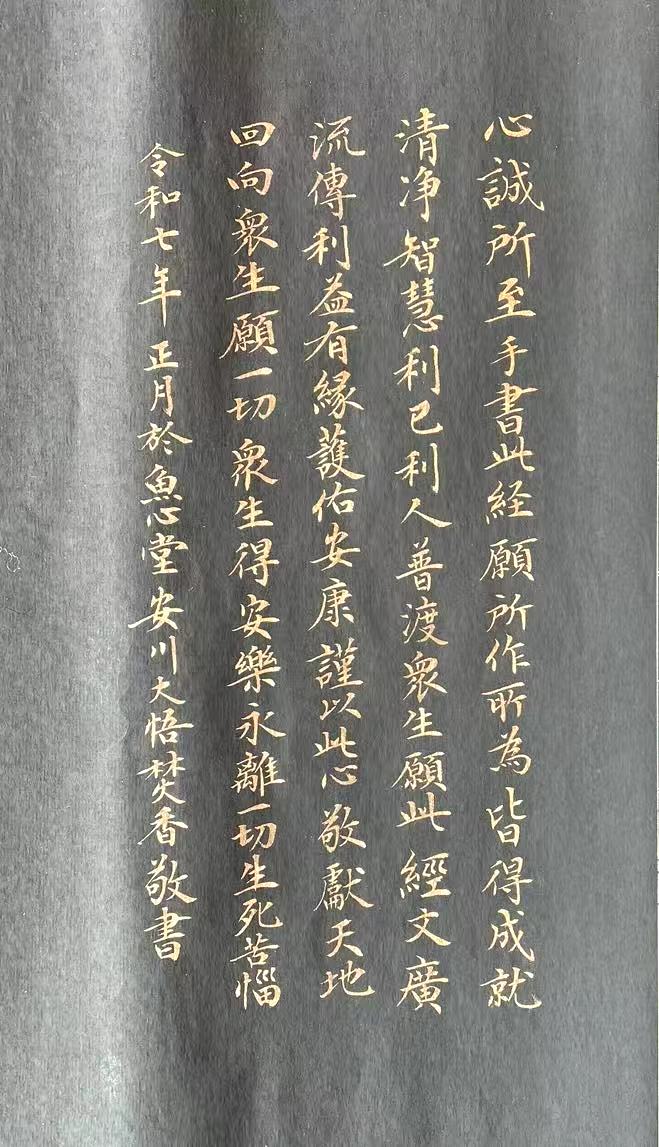 心誠所至手書此経願所作所為皆得成就
清净智慧利已利人普渡衆生願此經文廣
流傳利益有緣護佑安康謹以此心敬獻天地
回向衆生願一切衆生得安樂永離一切生死苦惱
令和七年正月於魚心堂安川大悟焚香敬書